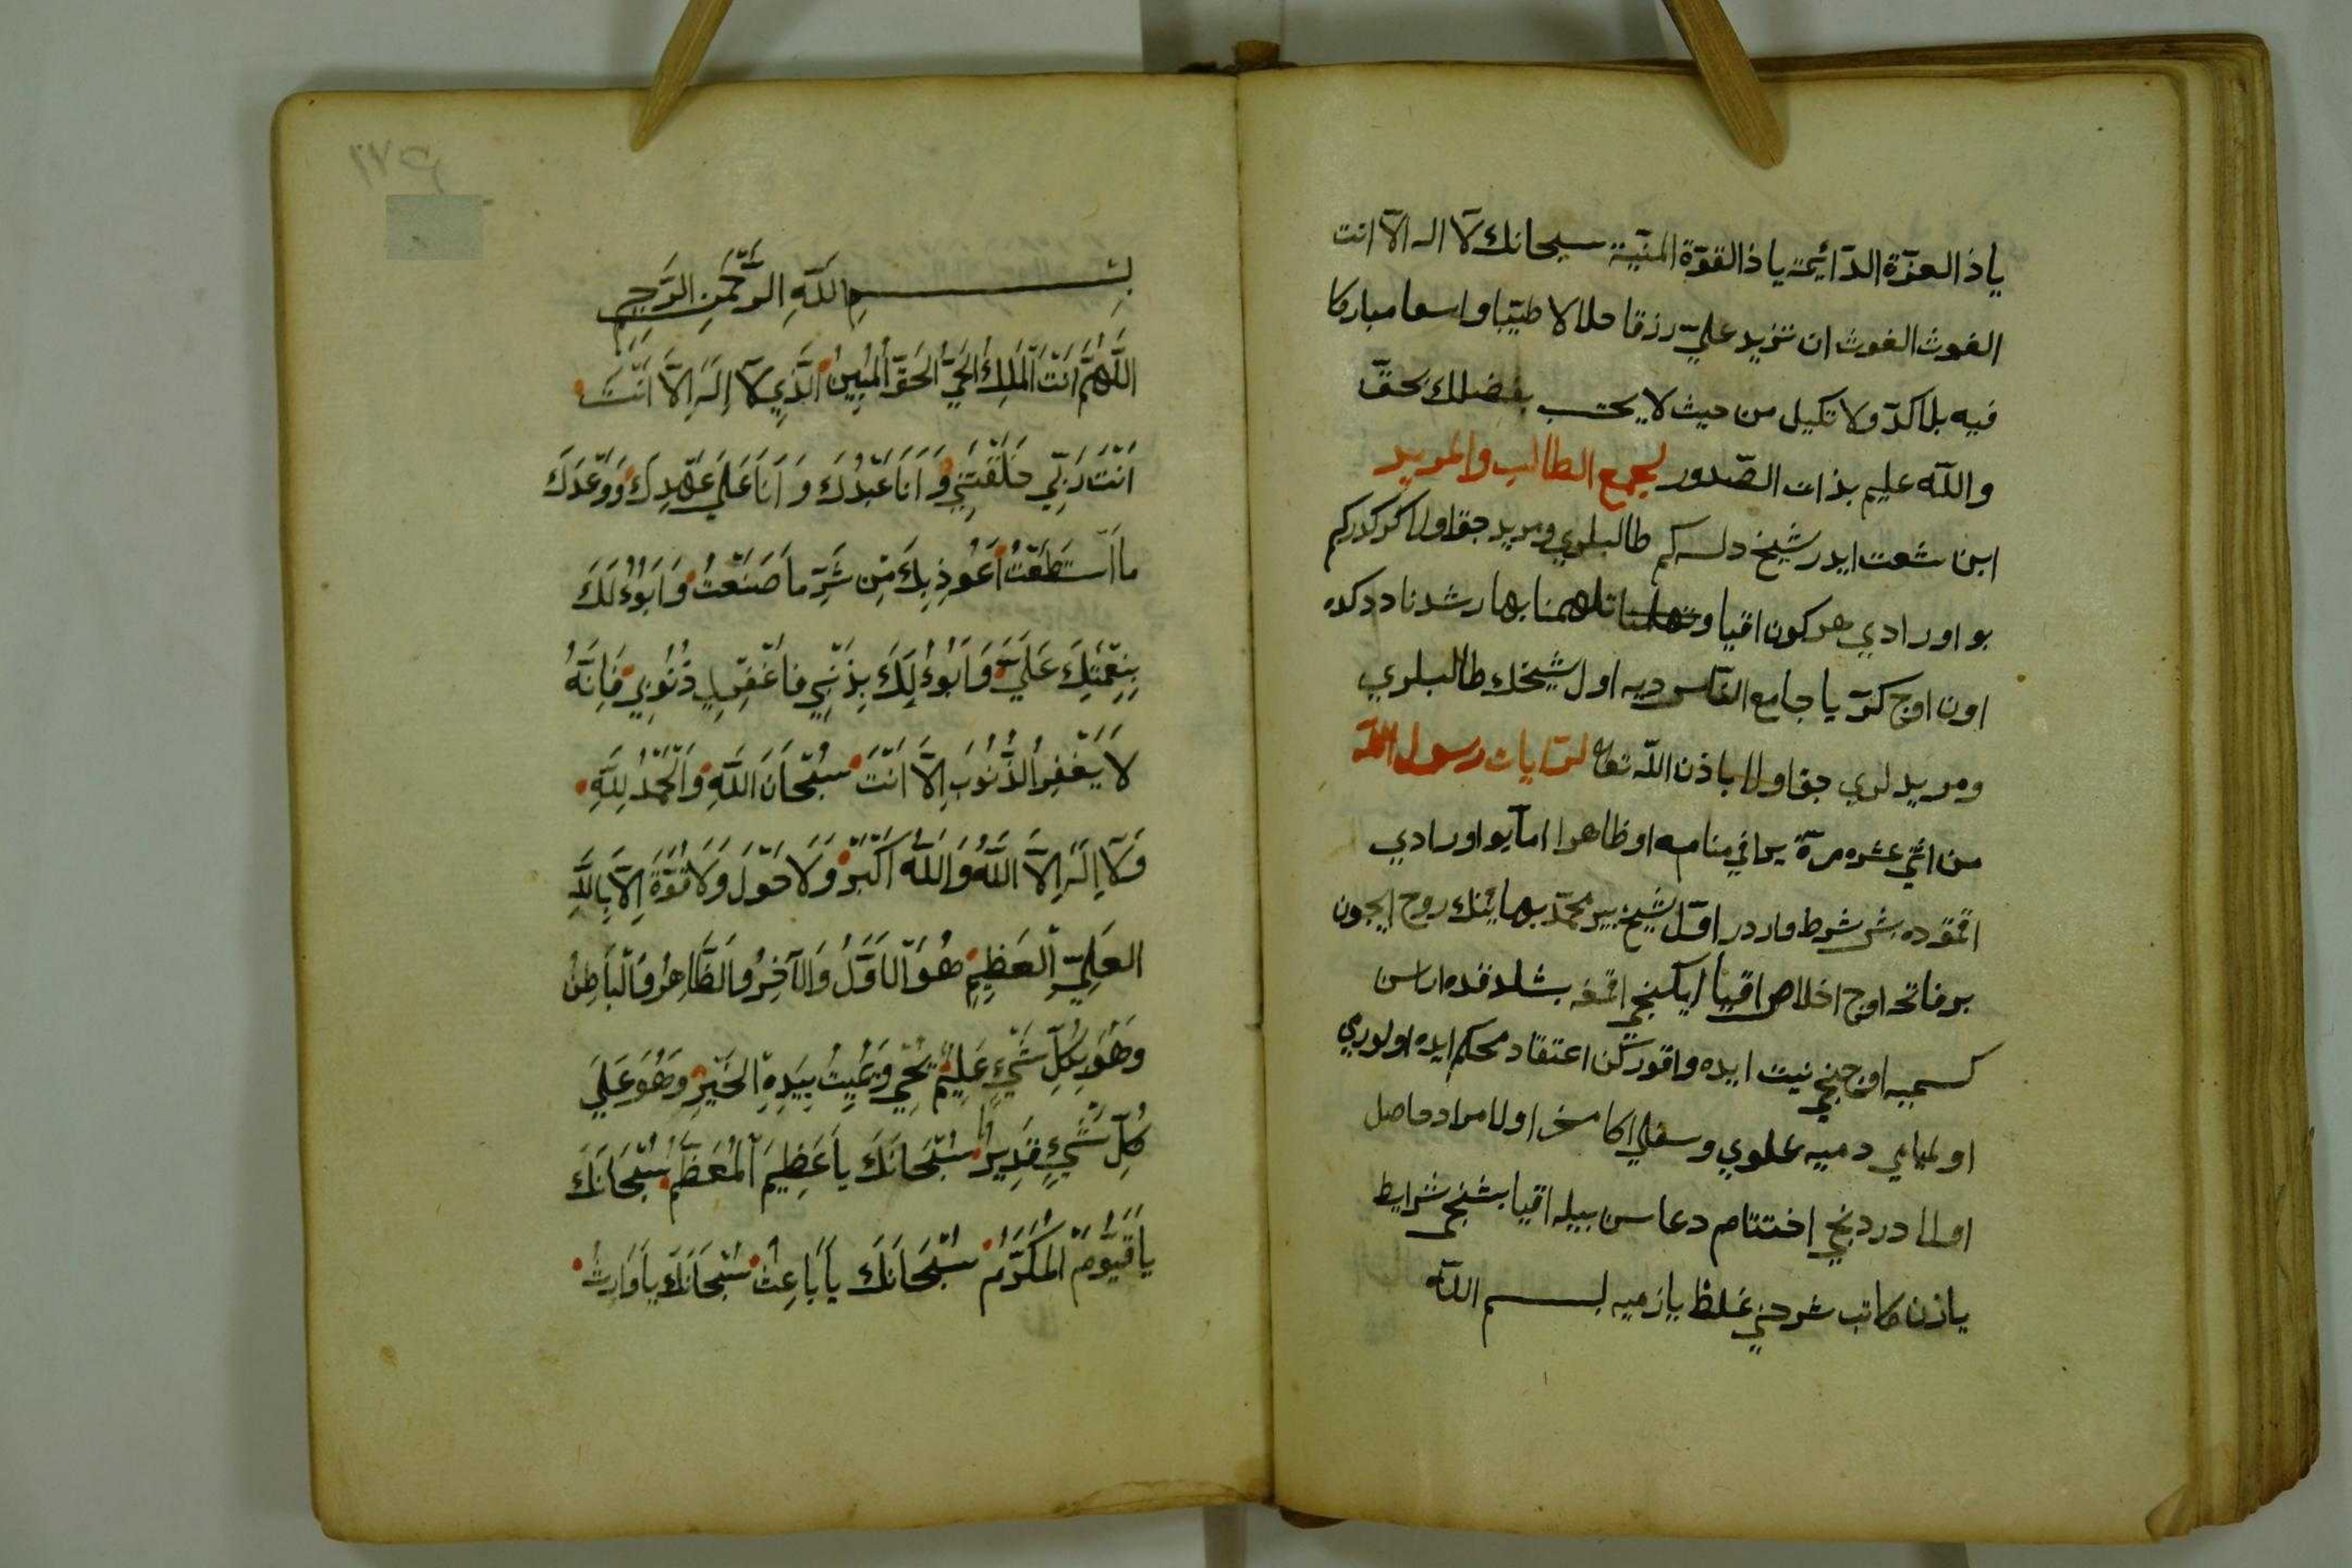 ياذالعزّة الدّائمة ياذالقوّة المنيّة سبحانك لآ اله الآ انت
الغوث الغوث ان تزيد عليّ رزقا حلالا طيّبا واسعا مباركا
فيه بلا كدّ ولا تكيل من حيث لا يحتسب بفضلك بحقّ
والله عليم بذات الصّدور لجمع الطالب والمريد
ابن شعت ايدر شيخ دلسه كم طالبلري ومريد جقا ولا كركدركم
بو اورادي هر كون اقيا وتهليناتلهمنا بهار شدنادد كده
اون اوج كرّ يا جامع النّاس ديه اول شيخك طالبلري
ومريدلري جقا ولا باذن الله تعا لرؤيات رسول الله
من اثني عشره مرّة يرا في منامه او ظاهرا امّا بو اورادي
اقمقده بش شرط واردر اوّل شيخ پير محمّد بهائينك روح ايچون
بر فاتحه اوچ اخلاص اقيا ايكنجي اقمغه بشلدقده اراسن
كسميه اوچنجي نيت ايده واقوركن اعتقاد محكم ايده اولورمي
اولميامي دميه علوي وسفلي اكا مسخر اولا مراد حاصل
اولا دردنجي اختتام دعاسن بيله اقيا بشنجي شرايط
يازن كاتب شرحني غلط يازميه بسم الله
بِسْمِ اللَّهِ الرَّحْمَنِ الرَّحِيمِ
اَللَّهُمَّ اَنْتَ الْمَلِكُ الْحَيُّ الْحَقُّ الْمُبِينُ الَّذِي لَآ اِلَهَ اِلَّا اَنْتَ
اَنْتَ رَبِّي خَلَقْتَنِي وَ اَنَا عَبْدُكَ وَ اَنَا عَلَي عَهْدِكَ وَوَعْدَكَ
مَا اسْتَطَعْتُ اَعُوذُ بِكَ مِنْ شَرِّ مَا صَنَعْتُ وَ اَبُوءُ لَكَ
بِنِعْمَتِكَ عَلَيَّ وَ اَبُوءُ لَكَ بِذَنْبِي فَاغْفِرْ لِي ذُنُوبِي فَاِنَّهُ
لَا يَغْفِرُ الذُّنُوبَ اِلَّا اَنْتَ سُبْحَانَ اللَّهِ وَالْحَمْدُ لِلَّهِ
وَلَآ اِلَهَ اِلَّا اللَّهُ وَاللَّهُ اَكْبَرُ وَلَا حَوْلَ وَلَا قُوَّةَ اِلَّا بِاللَّهِ
الْعَلِيِّ الْعَظِيمِ هُوَ الْاَوَّلُ وَالْآخِرُ وَالظَّاهِرُ وَالْبَاطِنُ
وَهُوَ بِكُلِّ شَيْءٍ عَلِيمٌ يُحْيِي وَيُمِيتُ بِيَدِهِ الْخَيْرُ وَهُوَ عَلَي
كُلِّ شَيْءٍ قَدِيرٌ سُبْحَانَكَ يَا عَظِيمَ الْمُعَظَّمُ سُبْحَانَكَ
يَا قَيُّومَ الْمُكَرَّمُ سُبْحَانَكَ يَا بَاعِثُ سُبْحَانَكَ يَا وَارِثُ